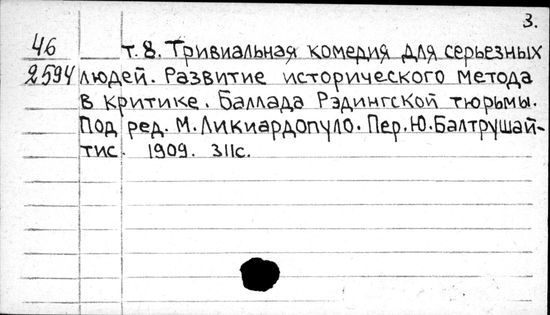 3.
46 т. 8. Тривиальная комедия для серьезных
2594 людей. Развитие исторического метода
в критике. Баллада Рэдингской тюрьмы.
Под ред. М. Ликиардопуло. Пер. Ю. Балтрушай-
тис. 1909. 311с.